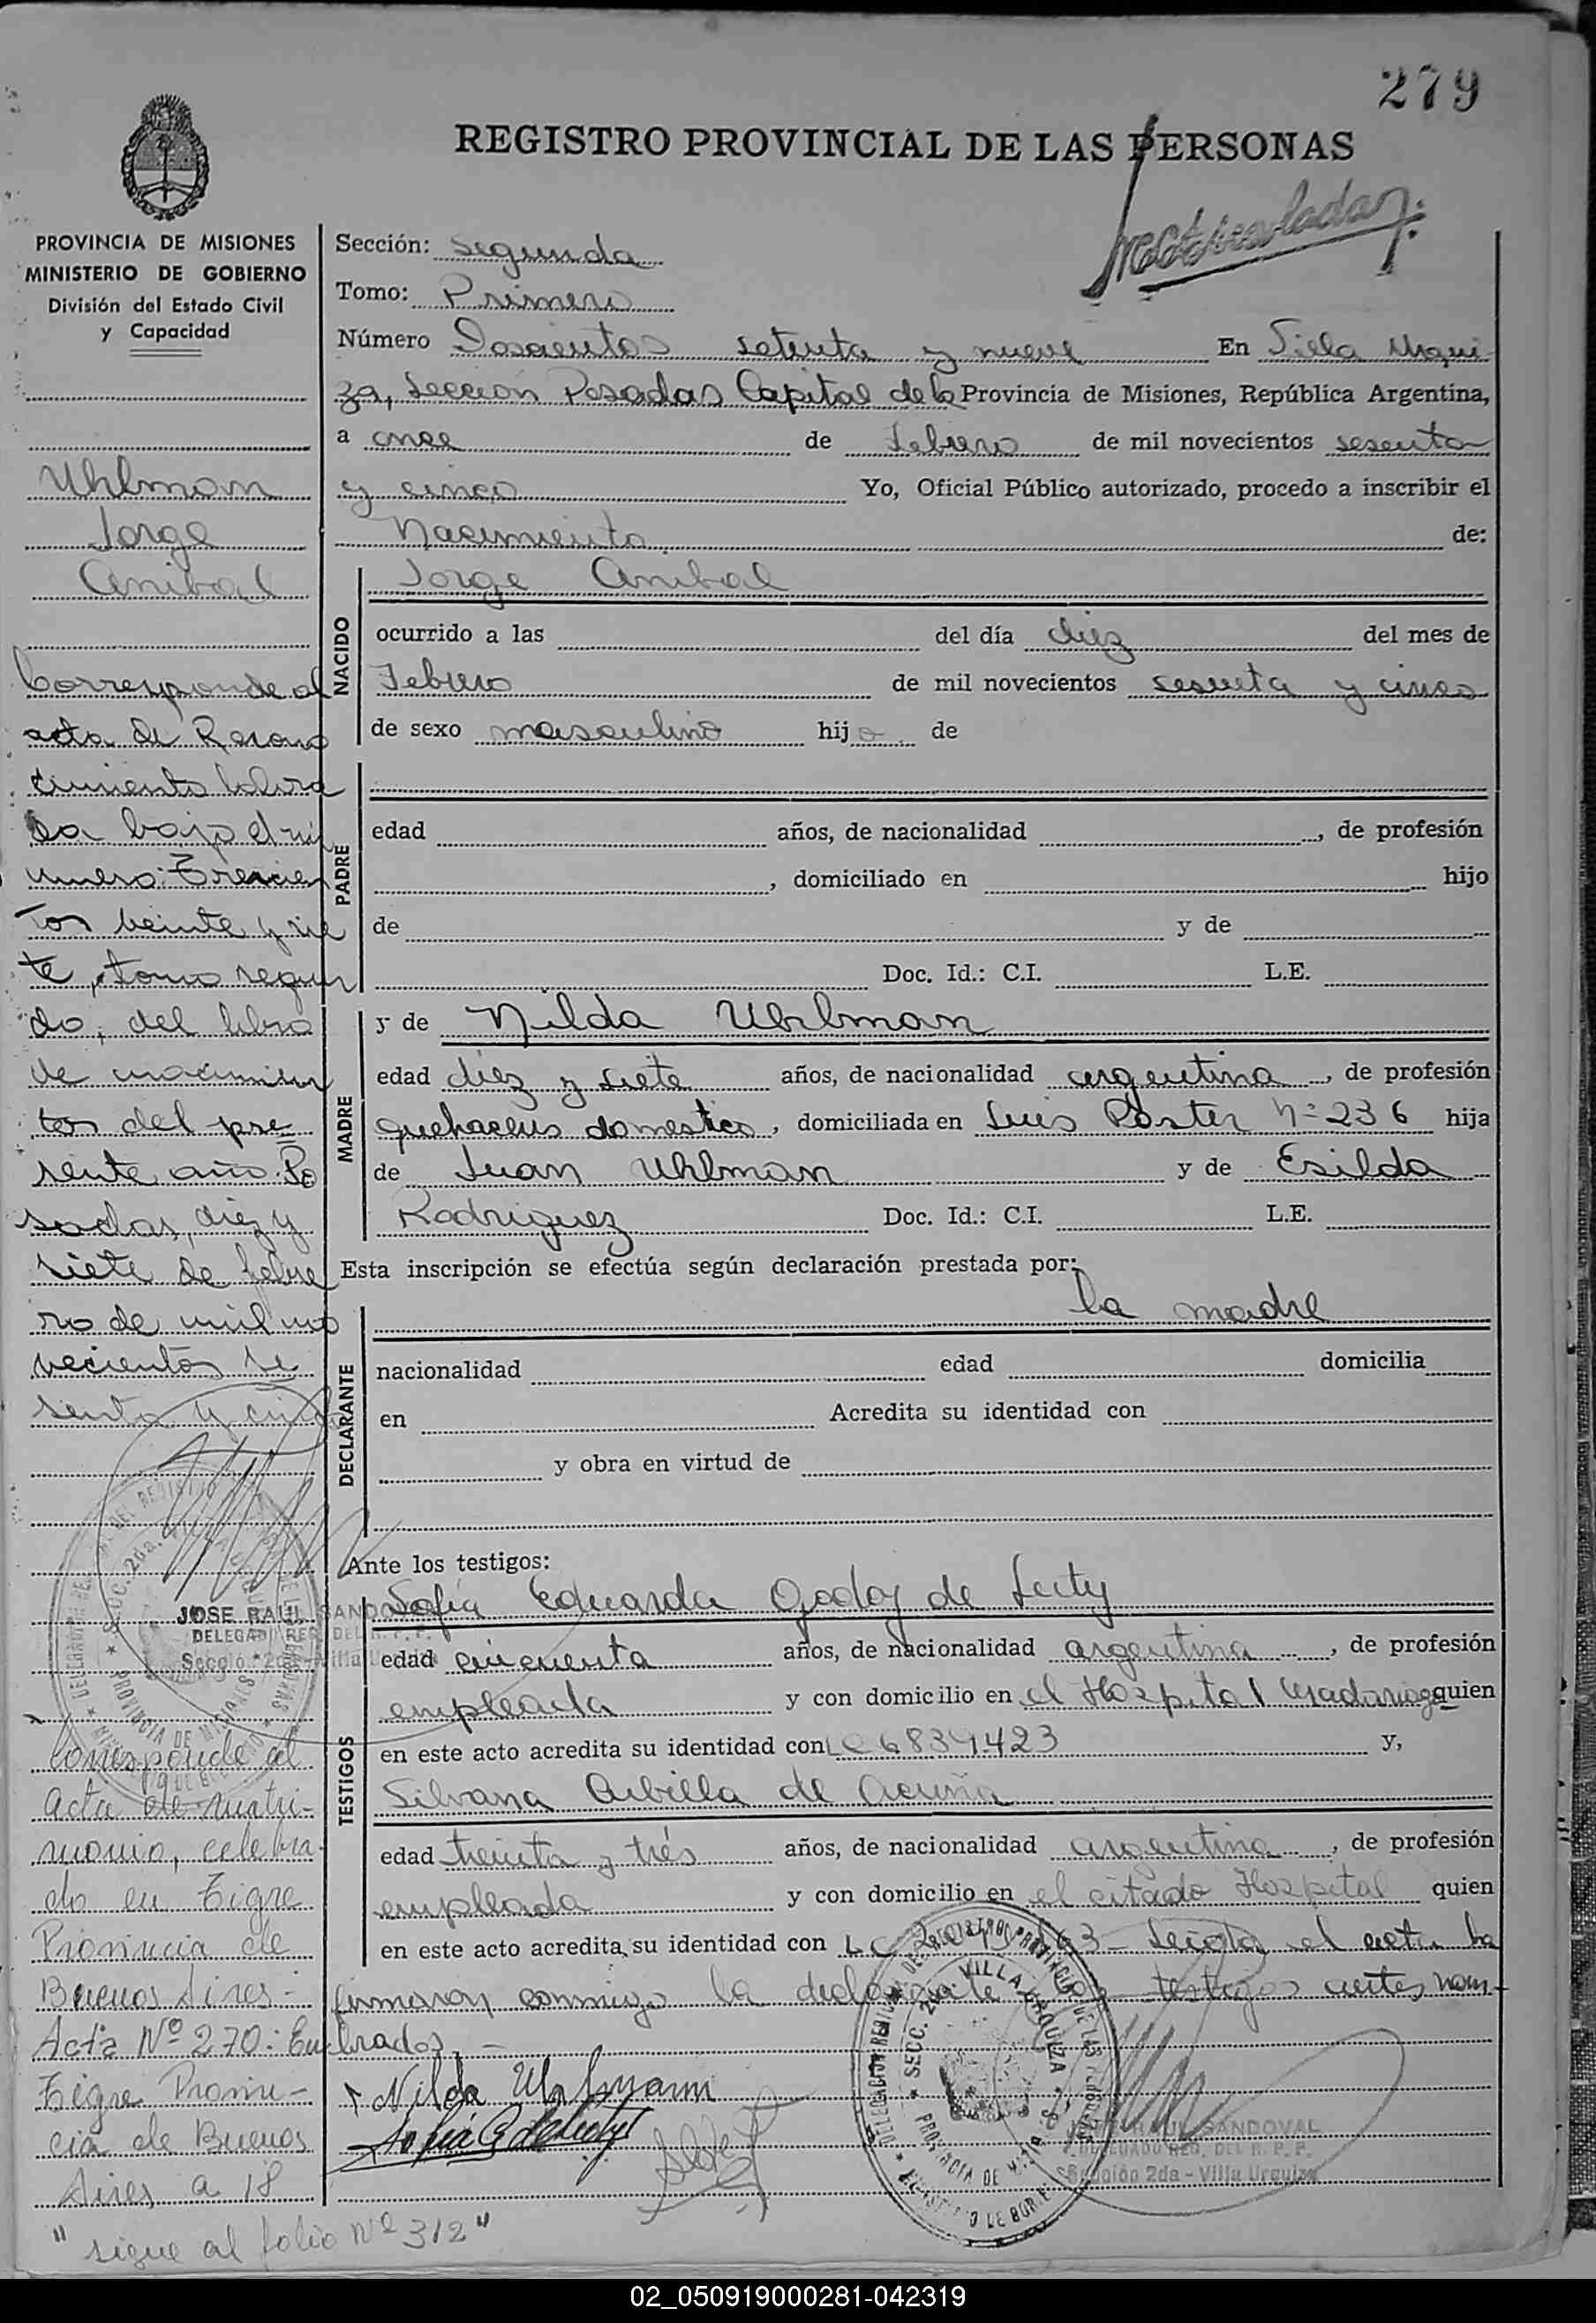 279
REGISTRO PROVINCIAL DE LAS PERSONAS
Matriculado
PROVINCIA DE MISIONES
MINISTERIO DE GOBIERNO
División del Estado Civil
y Capacidad
Uhlman
Jorge
Anibal
Corresponde al
acta de Recono
cimiento labra
da bajo el nú
mero: Trescien
tos veinte y sie
te, tomo segun
do, del libro
de nacimien
tos del pre
sente año. Po
sadas, diez y
siete de febre
ro de mil no
vecientos se
senta y cinco
JOSE RAUL SANDOVAL
DELEGADO REG. DEL R. P. P.
Secció. 2da - Villa Urquiza
Corresponde al
Acta de matri-
monio, celebra-
do en Tigre
Provincia de
Buenos Aires -
Acta Nº 270: En
Tigre Provin-
cia de Buenos
Aires a 18
"sigue al folio Nº 312"
Sección: Segunda
Tomo: Primero
Número Doscientos setenta y nueve En Villa Urqui
za, Sección Posadas Capital de la Provincia de Misiones, República Argentina,
a once de febrero de mil novecientos sesenta
y cinco Yo, Oficial Público autorizado, procedo a inscribir el
Nacimiento de:
NACIDO
Jorge Anibal
ocurrido a las del día diez del mes de
Febrero de mil novecientos sesenta y cinco
de sexo masculino hijo de
PADRE
edad años, de nacionalidad , de profesión
, domiciliado en hijo
de y de
Doc. Id.: C.I. L.E.
MADRE
y de Nilda Uhlman
edad diez y siete años, de nacionalidad argentina, de profesión
quehaceres domestico, domiciliada en Luis Paster Nº 236 hija
de Juan Uhlman y de Esilda
Rodriguez Doc. Id.: C.I. L.E.
Esta inscripción se efectúa según declaración prestada por:
la madre
DECLARANTE
nacionalidad edad domicilia
en Acredita su identidad con
y obra en virtud de
Ante los testigos:
TESTIGOS
Sofia Eduarda Godoy de
edad cincuenta años, de nacionalidad argentina, de profesión
empleada y con domicilio en el Hospital Madariaga quien
en este acto acredita su identidad con LC 6839.423 y,
Silvana Arbilla de Acuña
edad treinta y trés años, de nacionalidad argentina, de profesión
empleada y con domicilio en el citado Hospital quien
en este acto acredita su identidad con LC el acta la
firmaron conmigo la declarante y los testigos antes nom-
brados. -
Nilda Uhlmann
SECC. 2da. VILLA URQUIZA
PROVINCIA DE MISIONES
RAUL SANDOVAL
DELEGADO REG. DEL R. P. P.
Sección 2da - Villa Urquiza
02_050919000281-042319